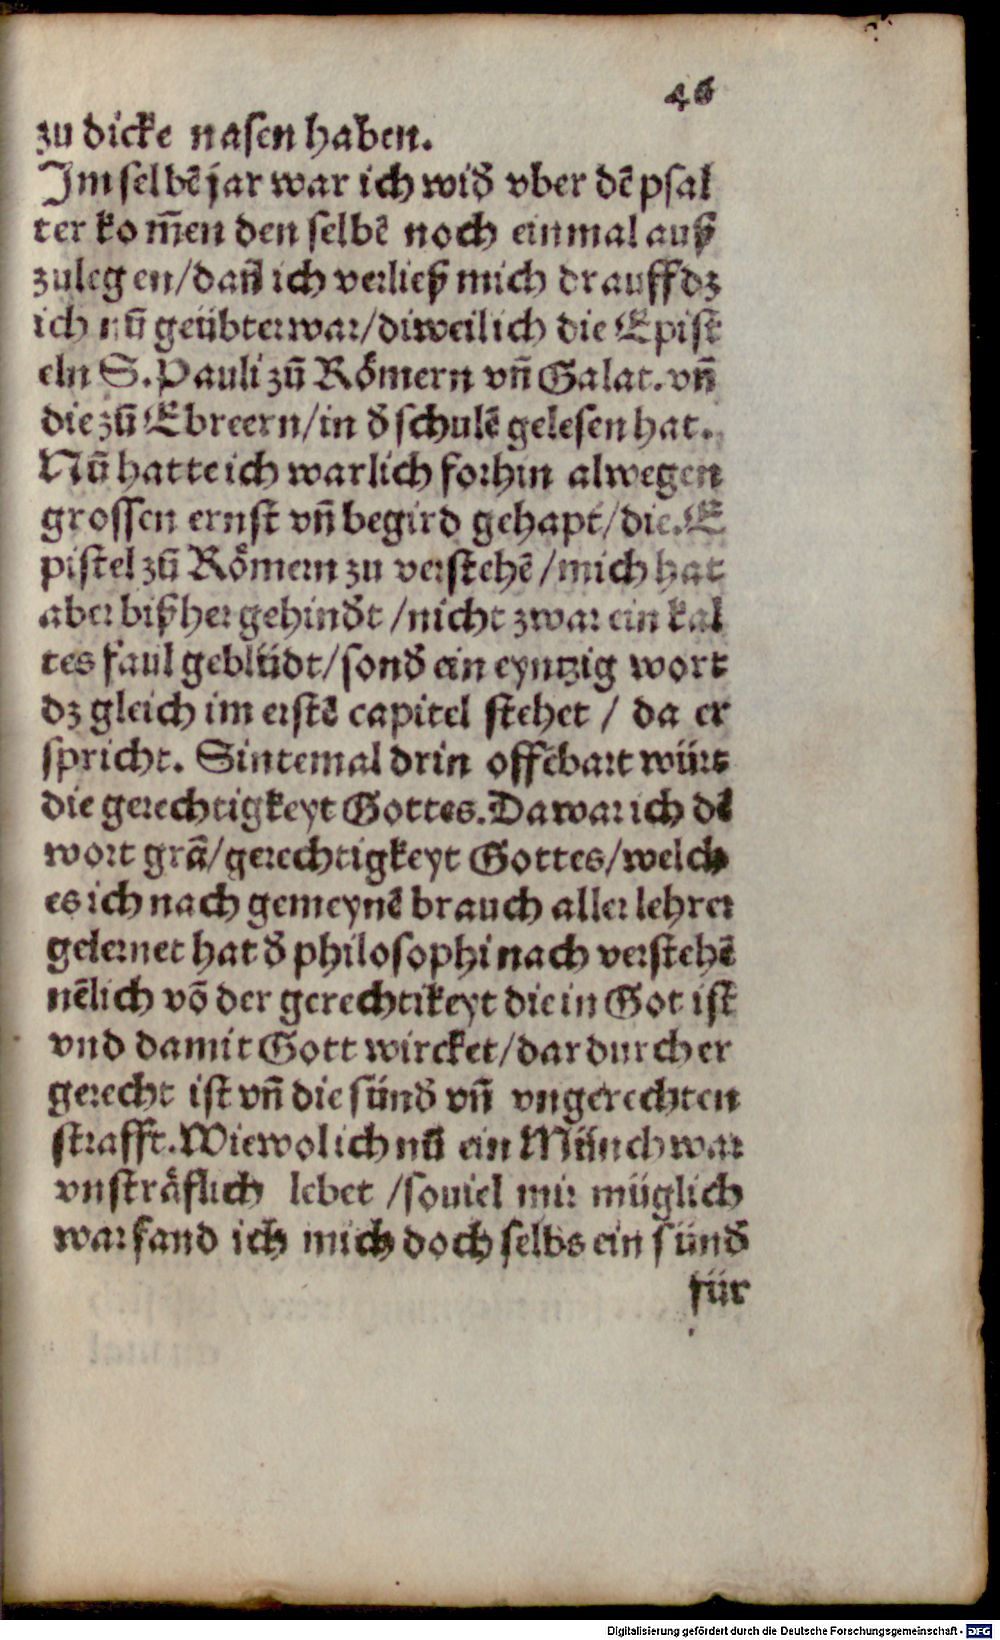 46
zu dicke nasen haben.
Im selbē jar war ich wið vber dē psal
ter kom̄en den selbē noch einmal auß
zulegen/dañ ich verließ mich drauff dz
ich nū geübter war/diweil ich die Epist
eln S. Pauli zů Römern vñ Galat. vñ
die zů Ebreern/in ð schulē gelesen hat.
Nū hatte ich warlich forhin alwegen
grossen ernst vñ begird gehapt/die E
pistel zů Römern zu verstehē/mich hat
aber bißher gehinðt/nicht zwar ein kal
tes faul geblüdt/sonð ein eyntzig wort
dz gleich im erstē capitel stehet / da er
spricht. Sintemal drin offēbart würt
die gerechtigkeyt Gottes. Da war ich dē
wort grā/gerechtigkeyt Gottes/welch
es ich nach gemeynē brauch aller lehrer
gelernet hat ð philosophi nach verstehē
nēlich vō der gerechtikeyt die in Got ist
vnd damit Gott wircket/dardurch er
gerecht ist vñ die sünð vñ vngerechten
strafft. Wiewol ich nū ein Münch war
vnsträflich lebet /souiel mir müglich
war fand ich mich doch selbs ein sünð
für
Digitalisierung gefördert durch die Deutsche Forschungsgemeinschaft - DFG